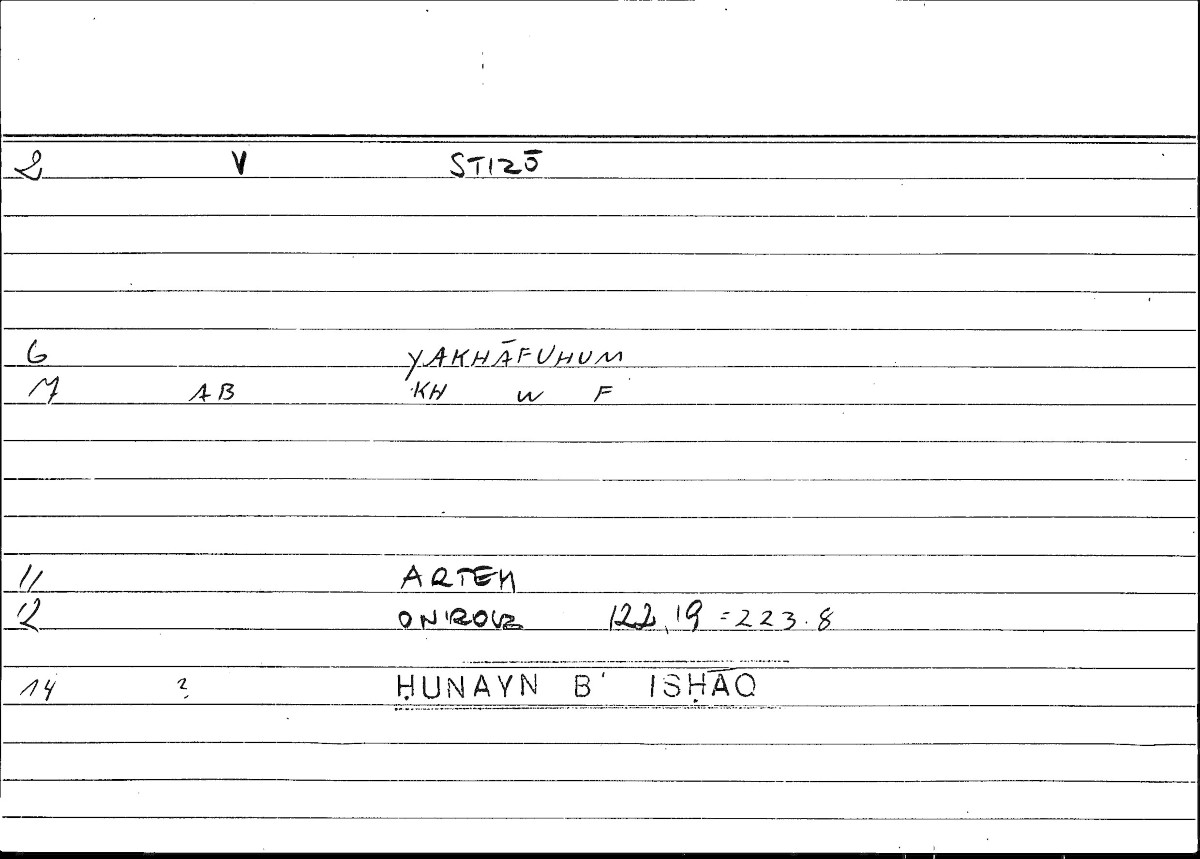 2 V STIZŌ
6 YAKHĀFUHUM
7 AB KH W F
11 ARTEM
12 ONIROCR 122,19 = 223.8
14 ? ḤUNAYN B' ISḤĀQ